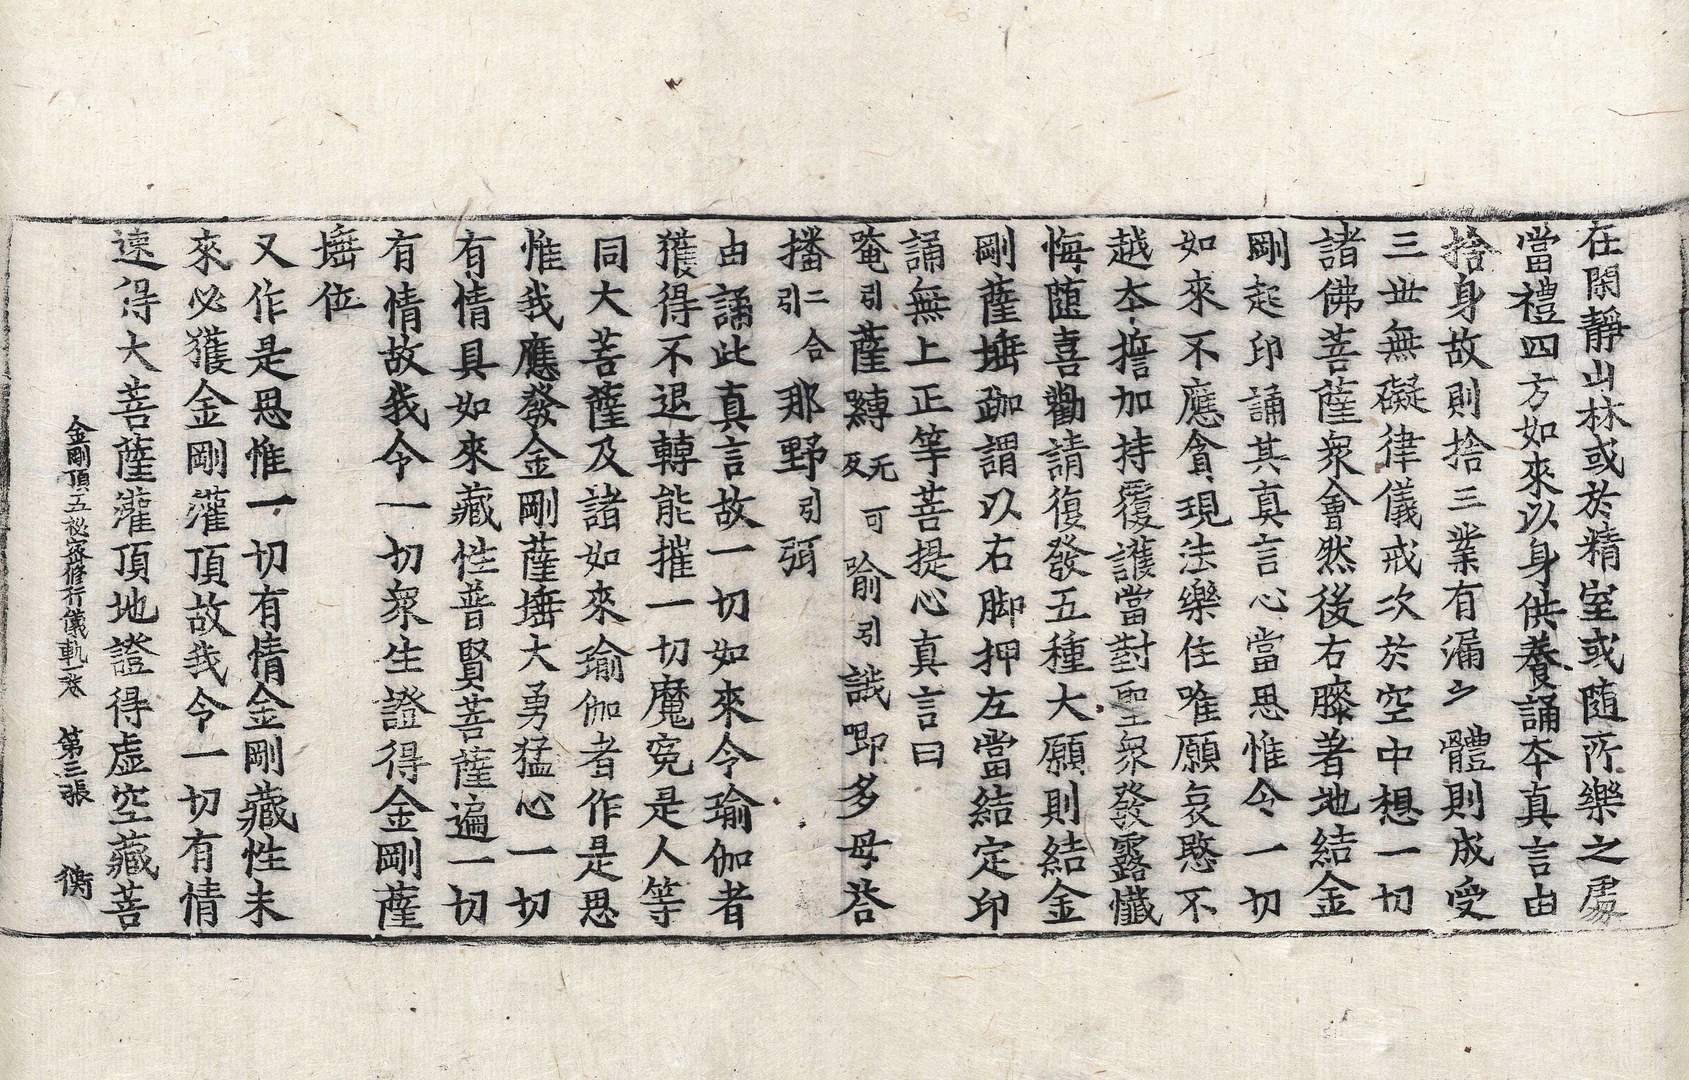 在閑靜山林或於精室或随所樂之處
當禮四方如來以身供養誦本真言由
捨身故則捨三業有漏之體則成受
三世無礙律儀戒次於空中想一切
諸佛菩薩衆會然後右膝著地結金
剛起印誦其真言心當思惟令一切
如來不應貪現法樂住唯願哀愍不
越本誓加持覆護當對聖衆發露懺
悔随喜勸請復發五種大願則結金
剛薩埵跏謂以右脚押左當結定印
誦無上正等菩提心真言曰
唵引薩嚩无可反喻引誐唧多母答
播二合引那野引弭
由誦此真言故一切如來令瑜伽者
獲得不退轉能摧一切魔寃是人等
同大菩薩及諸如來瑜伽者作是思
惟我應發金剛薩埵大勇猛心一切
有情具如來藏性普賢菩薩遍一切
有情故我令一切衆生證得金剛薩
埵位
又作是思惟一切有情金剛藏性未
來必獲金剛灌頂故我令一切有情
速得大菩薩灌頂地證得虛空藏菩
金剛頂五秘密修行儀軌一卷　第三張　衡